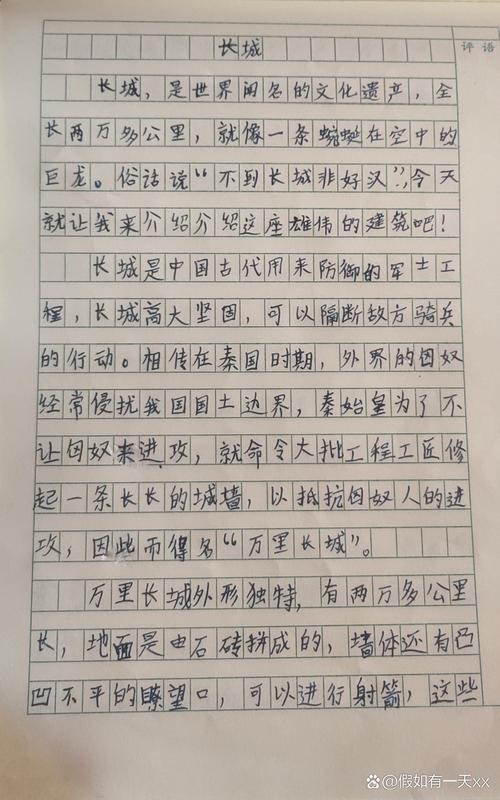 长城
评语
长城，是世界闻名的文化遗产，全
长两万多公里，就像一条蜿蜒在空中的
巨龙。俗话说“不到长城非好汉”，今天
就让我来介绍介绍这座雄伟的建筑吧！
长城是中国古代用来防御的军士工
程，长城高大坚固，可以隔断敌方骑兵
的行动。相传在秦国时期，外界的匈奴
经常侵扰我国国土边界，秦始皇为了不
让匈奴来进攻，就命令大批工程工匠修
起一条长长的城墙，以抵抗匈奴人的进
攻，因此而得名“万里长城”。
万里长城外形独特，有两万多公里
长，地面是由石砖拼成的，墙体还有凸
凹不平的瞭望口，可以进行射箭，这些
@假如有一天xx